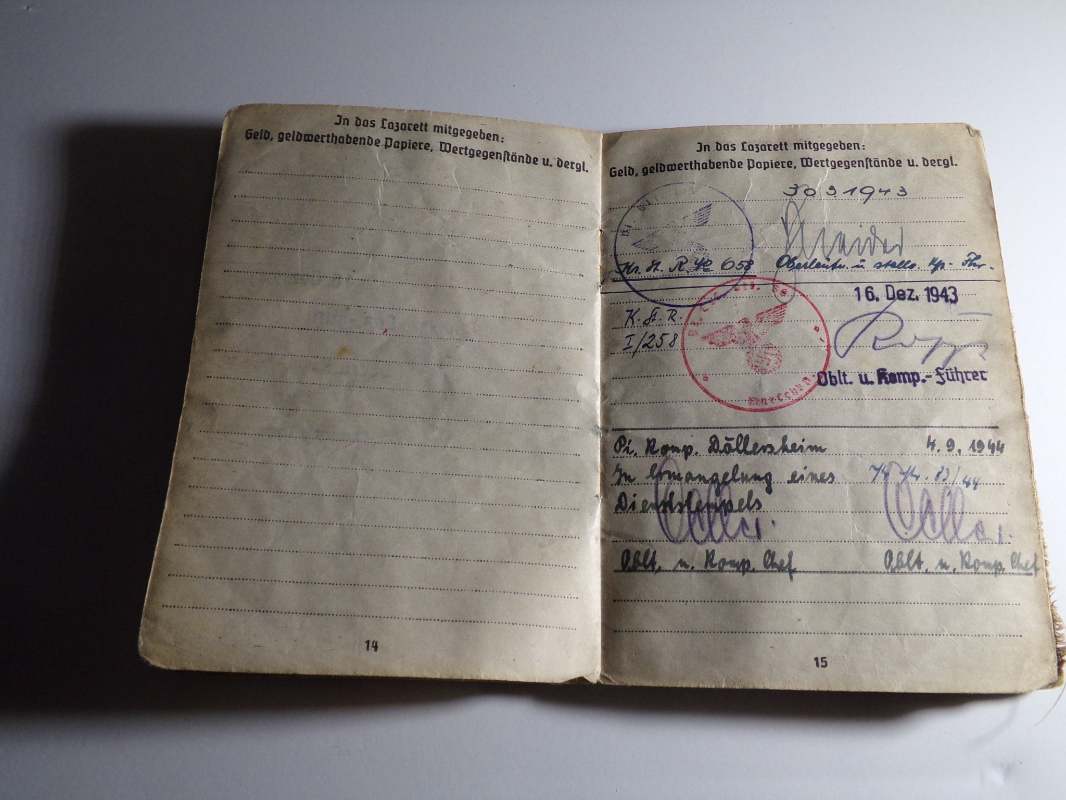 In das Lazarett mitgegeben:
Geld, geldwerthabende Papiere, Wertgegenstände u. dergl.
14
In das Lazarett mitgegeben:
Geld, geldwerthabende Papiere, Wertgegenstände u. dergl.
30 3 1943
Oberleutn. u. stellv. Kp. Fhr.
16. Dez. 1943
K. F. R.
I/258
Oblt. u. Komp.-Führer
Pi. Komp. Döllersheim 4. 9. 1944
In Ermangelung eines
Dienststempels
Oblt. u. Komp. Chef Oblt. u. Komp. Chef
15